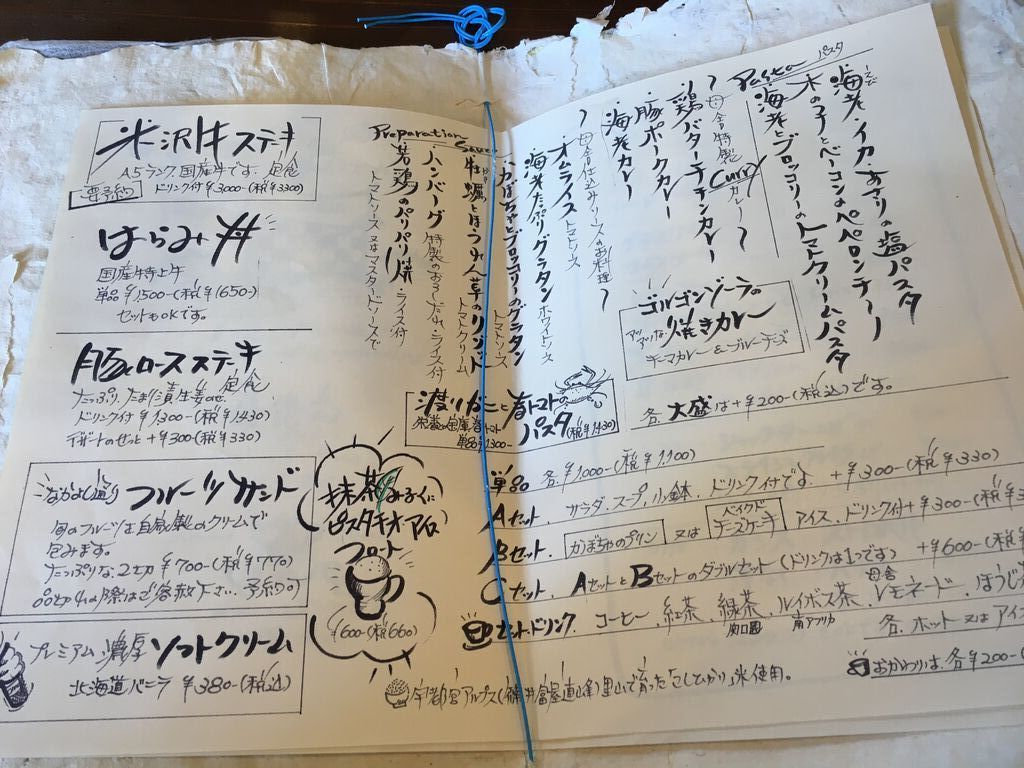 米沢牛ステーキ
A5ランク国産牛です。定食
要予約
ドリンク付¥3000-(税¥3300)
はらみ丼
国産牛特上牛
単品¥1500-(税¥1650-)
セットもOKです。
豚ロースステーキ
たっぷり、たまり漬生姜のせ 定食
ドリンク付¥1300-(税¥1430)
デザートのセット+¥300(税¥330)
なかよし通り フルーツサンド
旬のフルーツを自家製のクリームで
包みます。
たっぷりな2切¥700-(税¥770)
品切れの際はご容赦下さい。予約可
プレミアム濃厚ソフトクリーム
北海道バニラ ¥380-(税込)
抹茶みるくに
ピスタチオアイス
フロート
¥600-(税¥660)
Pasta パスタ
海老・イカ・あさりの塩パスタ
木のコとベーコンのペペロンチーノ
海老とブロッコリーのトマトクリームパスタ
〜田舎特製 Curry カレー〜
鶏バターチキンカレー
豚ポークカレー
海老カレー
ゴルゴンゾーラの
アツアツな焼きカレー
キーマカレー&ブルーチーズ
〜田舎仕込みソースのお料理〜
オムライス トマトソース
海老たっぷりグラタン ホワイトソース
かぼちゃとブロッコリーのグラタン トマトソース
Preparation Sauce
牡蠣とほうれん草のリゾット トマトクリーム
ハンバーグ 特製のおろしだれ・ライス付
若鶏のパリパリ焼 ・ライス付
トマトソース 又はマスタードソースで
渡りがにと春トマトの
パスタ
単品¥1300-(税¥1430)
各 大盛は+¥200-(税込)です。
単品 各¥1000-(税¥1100)
Aセット. サラダ、スープ、小鉢、ドリンク付です +¥300-(税¥330)
Bセット. かぼちゃのプリン 又は ベイクドチーズケーキ アイス、ドリンク付+¥300-(税
Cセット. AセットとBセットのダブルセット(ドリンクは1つです) +¥600-(税
セットドリンク. コーヒー、紅茶、緑茶、ルイボス茶、レモネード、ほうじ
南アフリカ
各 ホット又はアイ
おかわりは、各¥200-(
里山で育った「こしひかり」米使用。